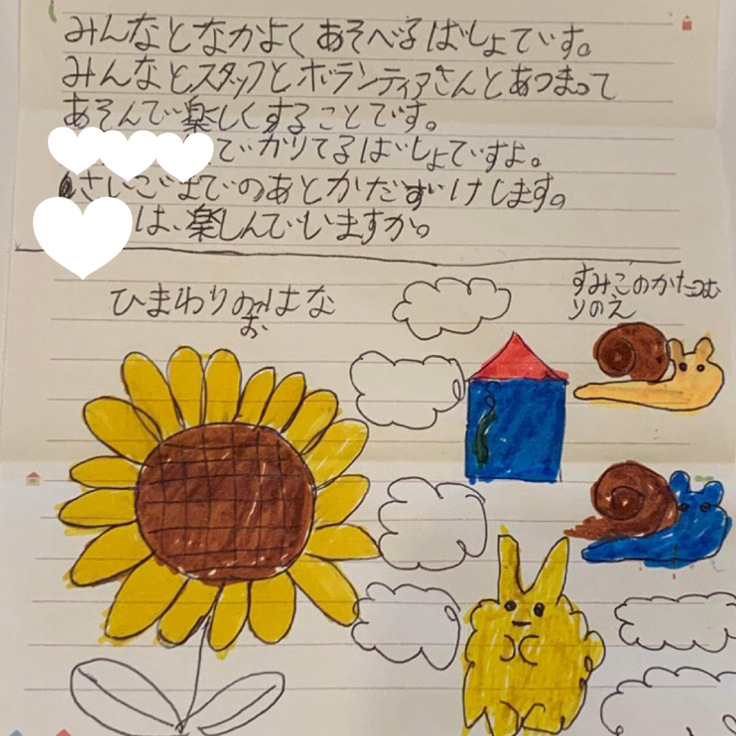 みんなとなかよくあそべるばしょです。
みんなとスタッフとボランティアさんとあつまって
あそんで楽しくすることです。
でかりてるばしょですよ。
さいごまでのあとかたずけします。
は、楽しんでいますか。
ひまわりのおはな
すみこのかたつむ
りのえ